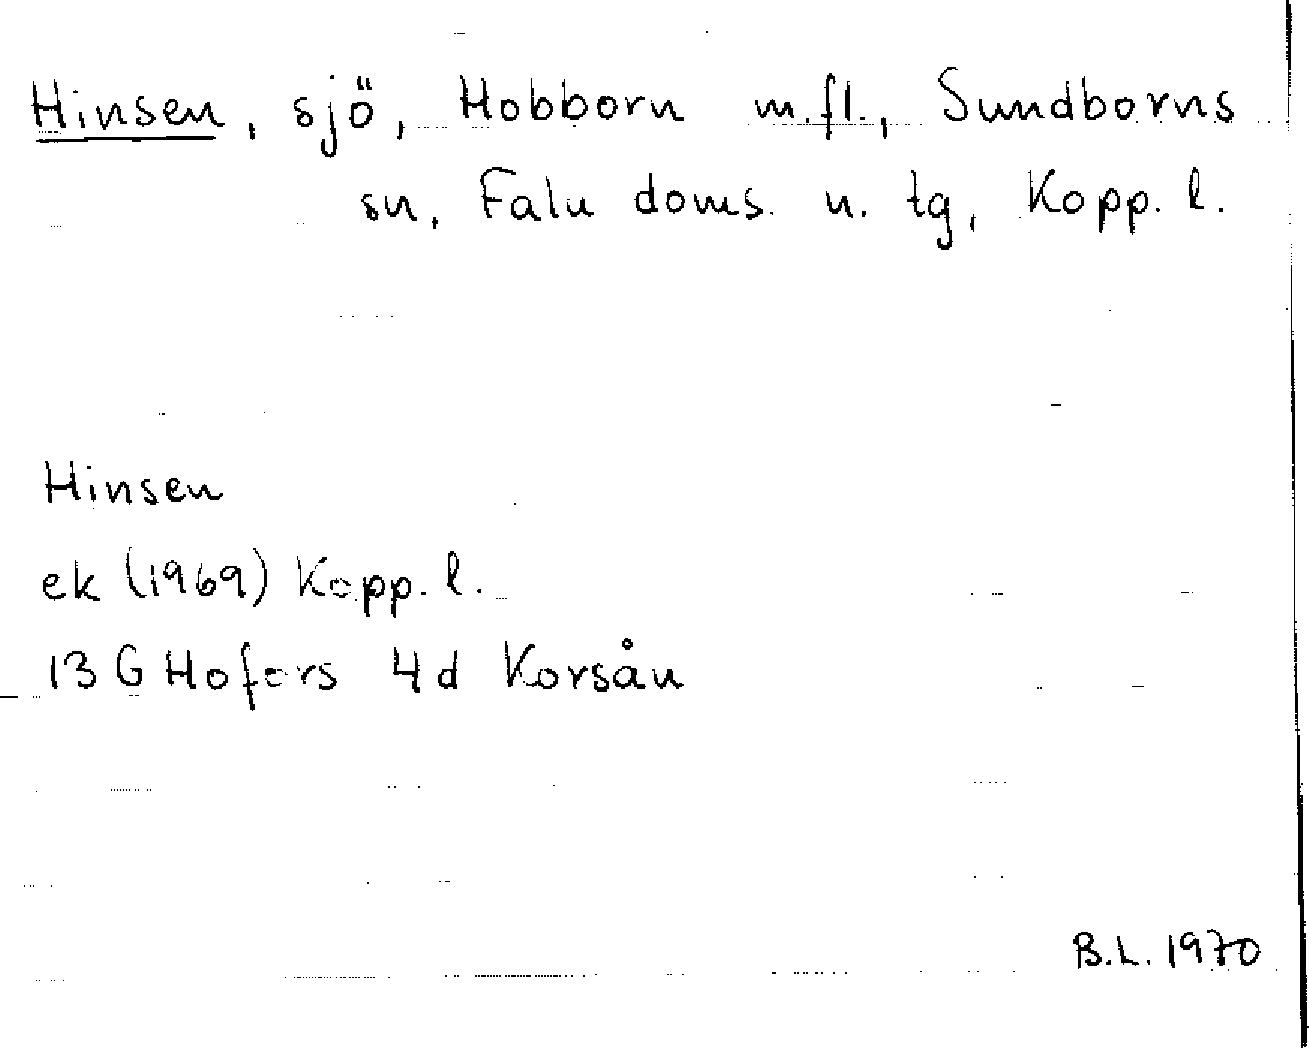 Hinsen, sjö, Hobborn m.fl., Sundborns
sn, Falu doms. n. tg, Kopp. l.
Hinsen
ek (1969) Kopp. l.
13 G Hofors 4d Korsån
B.L. 1970